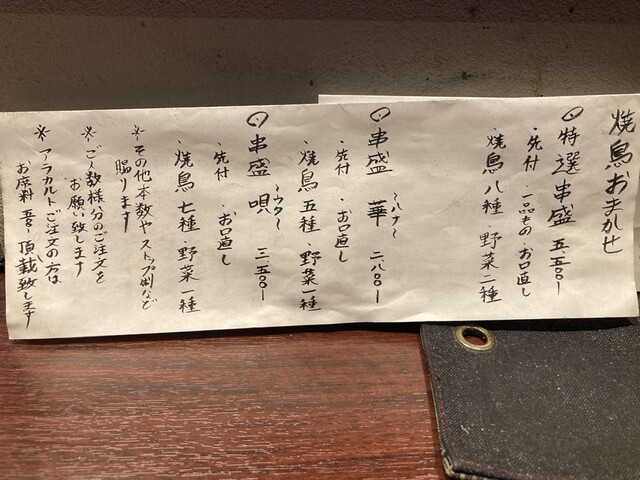 焼鳥おまかせ
◎特選串盛 五五〇〇ー
・先付・一品もの・お口直し
・焼鳥八種 野菜二種
◎串盛 華 〜ハナ〜 二八〇〇ー
・先付・お口直し
・焼鳥五種・野菜一種
◎串盛 唄 〜ウタ〜 三五〇〇ー
・先付 お口直し
・焼鳥七種・野菜一種
※その他本数や ストップ制など
賜ります
※ご人数様分のご注文を
お願い致します
※アラカルトご注文の方は
お席料 五〇〇ー頂戴致します